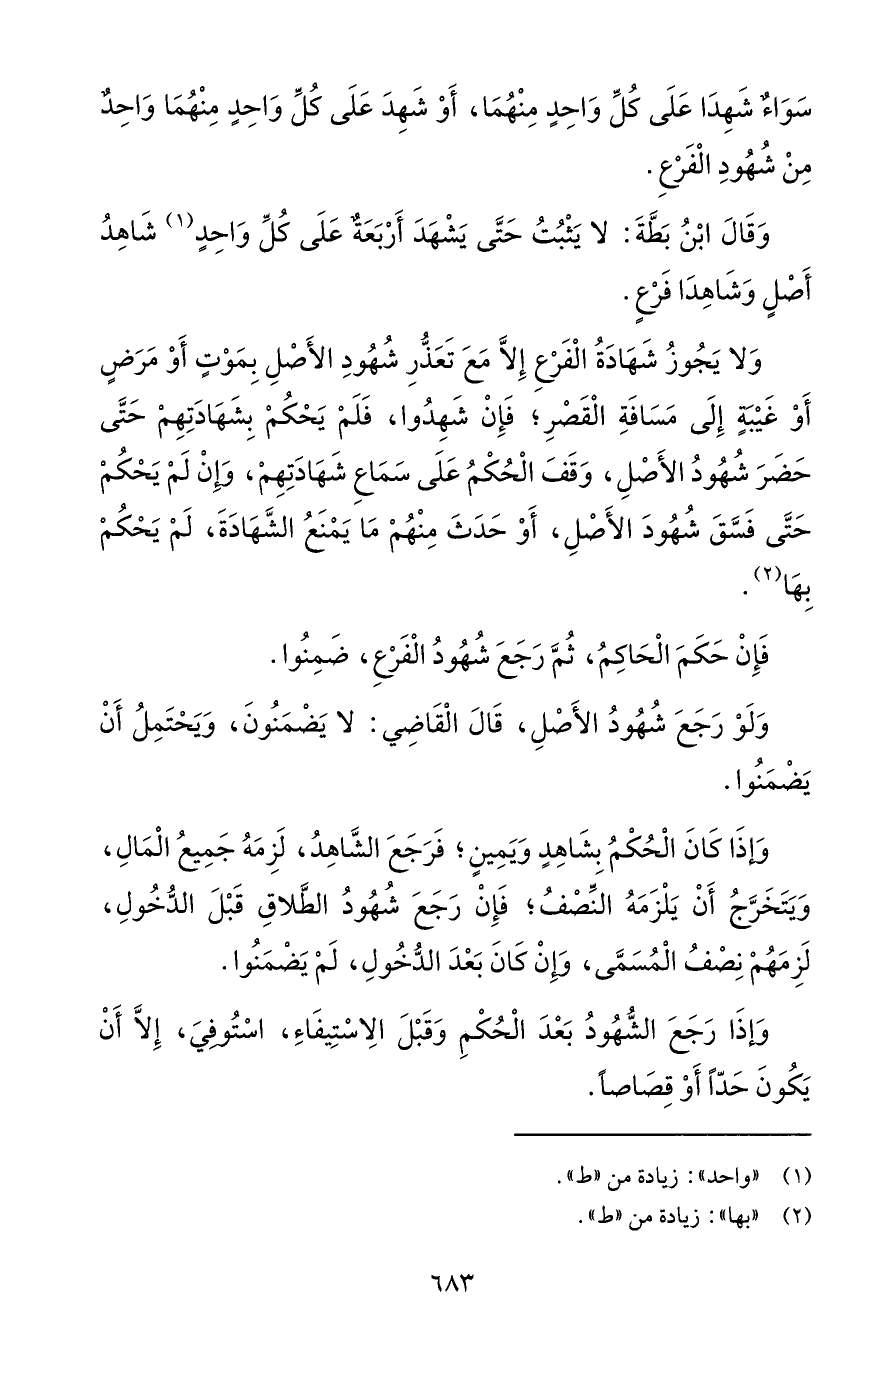 سَوَاءٌ شَهِدَا عَلَى كُلِّ وَاحِدٍ مِنْهُمَا، أَوْ شَهِدَ عَلَى كُلِّ وَاحِدٍ مِنْهُمَا وَاحِدٌ
مِنْ شُهُودِ الْفَرْعِ.
وَقَالَ ابْنُ بَطَّةَ: لا يَثْبُتُ حَتَّى يَشْهَدَ أَرْبَعَةٌ عَلَى كُلِّ وَاحِدٍ(١) شَاهِدُ
أَصْلٍ وَشَاهِدَا فَرْعٍ.
وَلا يَجُوزُ شَهَادَةُ الْفَرْعِ إِلاَّ مَعَ تَعَذُّرِ شُهُودِ الأَصْلِ بِمَوْتٍ أَوْ مَرَضٍ
أَوْ غَيْبَةٍ إِلَى مَسَافَةِ الْقَصْرِ؛ فَإِنْ شَهِدُوا، فَلَمْ يَحْكُمْ بِشَهَادَتِهِمْ حَتَّى
حَضَرَ شُهُودُ الأَصْلِ، وَقَفَ الْحُكْمُ عَلَى سَمَاعِ شَهَادَتِهِمْ، وَإِنْ لَمْ يَحْكُمْ
حَتَّى فَسَّقَ شُهُودَ الأَصْلِ، أَوْ حَدَثَ مِنْهُمْ مَا يَمْنَعُ الشَّهَادَةَ، لَمْ يَحْكُمْ
بِهَا(٢).
فَإِنْ حَكَمَ الْحَاكِمُ، ثُمَّ رَجَعَ شُهُودُ الْفَرْعِ، ضَمِنُوا.
وَلَوْ رَجَعَ شُهُودُ الأَصْلِ، قَالَ الْقَاضِي: لا يَضْمَنُونَ، وَيَحْتَمِلُ أَنْ
يَضْمَنُوا.
وَإِذَا كَانَ الْحُكْمُ بِشَاهِدٍ وَيَمِينٍ؛ فَرَجَعَ الشَّاهِدُ، لَزِمَهُ جَمِيعُ الْمَالِ،
وَيَتَخَرَّجُ أَنْ يَلْزَمَهُ النِّصْفُ؛ فَإِنْ رَجَعَ شُهُودُ الطَّلاقِ قَبْلَ الدُّخُولِ،
لَزِمَهُمْ نِصْفُ الْمُسَمَّى، وَإِنْ كَانَ بَعْدَ الدُّخُولِ، لَمْ يَضْمَنُوا.
وَإِذَا رَجَعَ الشُّهُودُ بَعْدَ الْحُكْمِ وَقَبْلَ الِاسْتِيفَاءِ، اسْتُوفِيَ، إِلاَّ أَنْ
يَكُونَ حَدّاً أَوْ قِصَاصاً.
(١) «واحد»: زيادة من «ط».
(٢) «بها»: زيادة من «ط».
٦٨٣